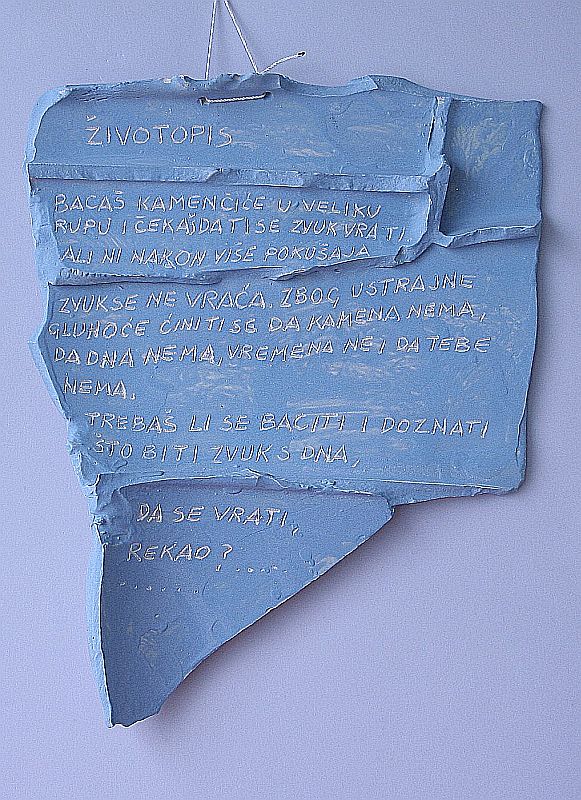 ŽIVOTOPIS
BACAŠ KAMENČIĆE U VELIKU
RUPU I ČEKAŠ DA TI SE ZVUK VRATI
ALI NI NAKON VIŠE POKUŠAJA
ZVUK SE NE VRAĆA. ZBOG USTRAJNE
GLUHOĆE ČINI TI SE DA KAMENA NEMA,
DA DNA NEMA, VREMENA NE I DA TEBE
NEMA.
TREBAŠ LI SE BACITI I DOZNATI
ŠTO BI TI ZVUK S DNA,
DA SE VRATI,
REKAO?......
.......